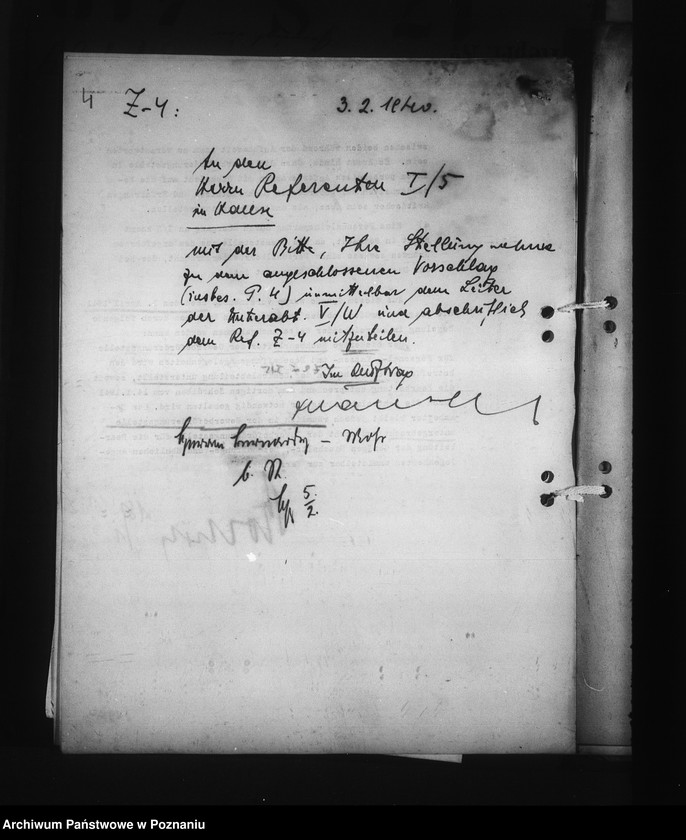 4
Z-4: 3.2.1940.
An den
Herrn Referenten I/5
im Hause
mit der Bitte, Ihre Stellungnahme
zu dem angeschlossenen Vorschlag
(insbes. P. 4) unmittelbar dem Leiter
der Unterabt. V/W und abschriftlich
dem Ref. Z-4 mitzuteilen.
Im Auftrag
b. R.
5.
2.
Archiwum Państwowe w Poznaniu